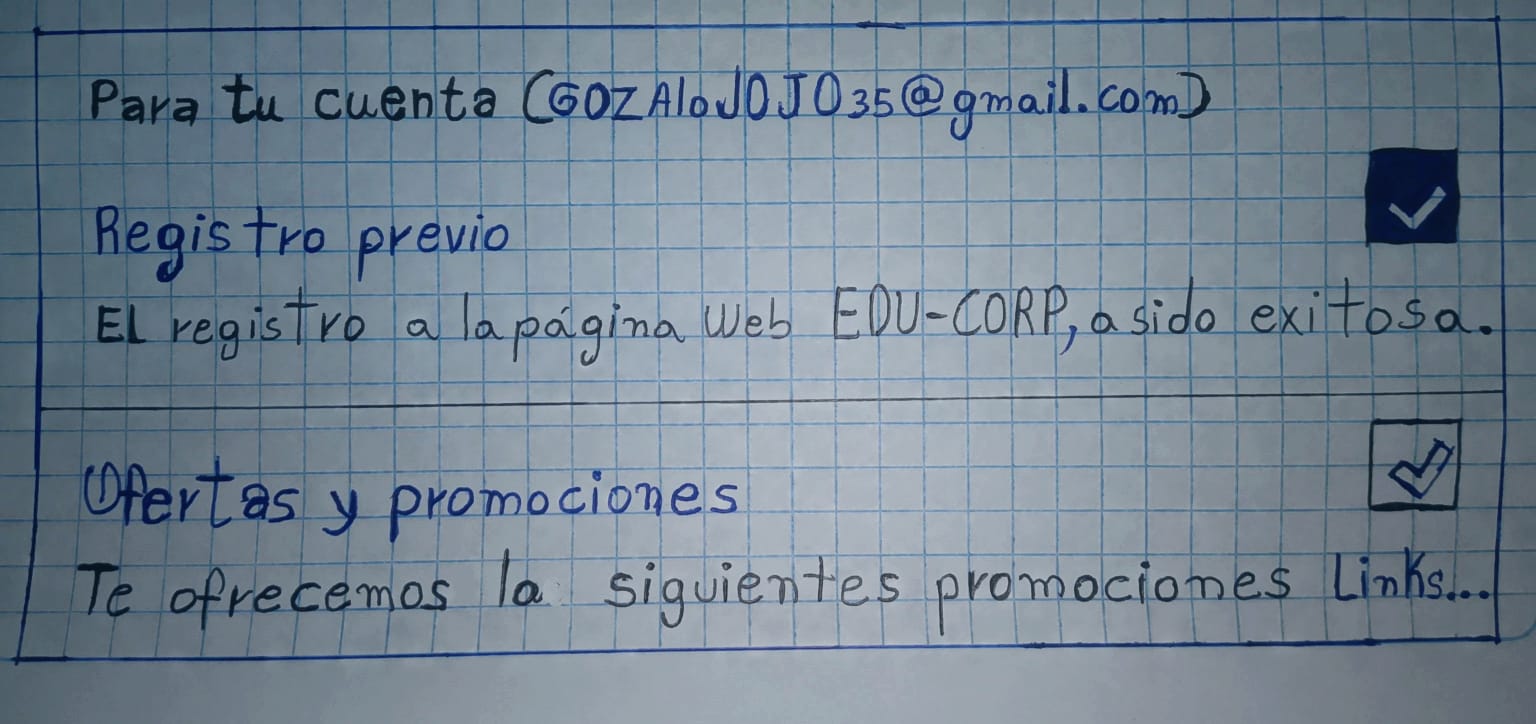 Para tu cuenta (GOZAloJOJO35@gmail.com)
Registro previo
El registro a la página Web EDU-CORP, a sido exitosa.
Ofertas y promociones
Te ofrecemos la siguientes promociones Links...